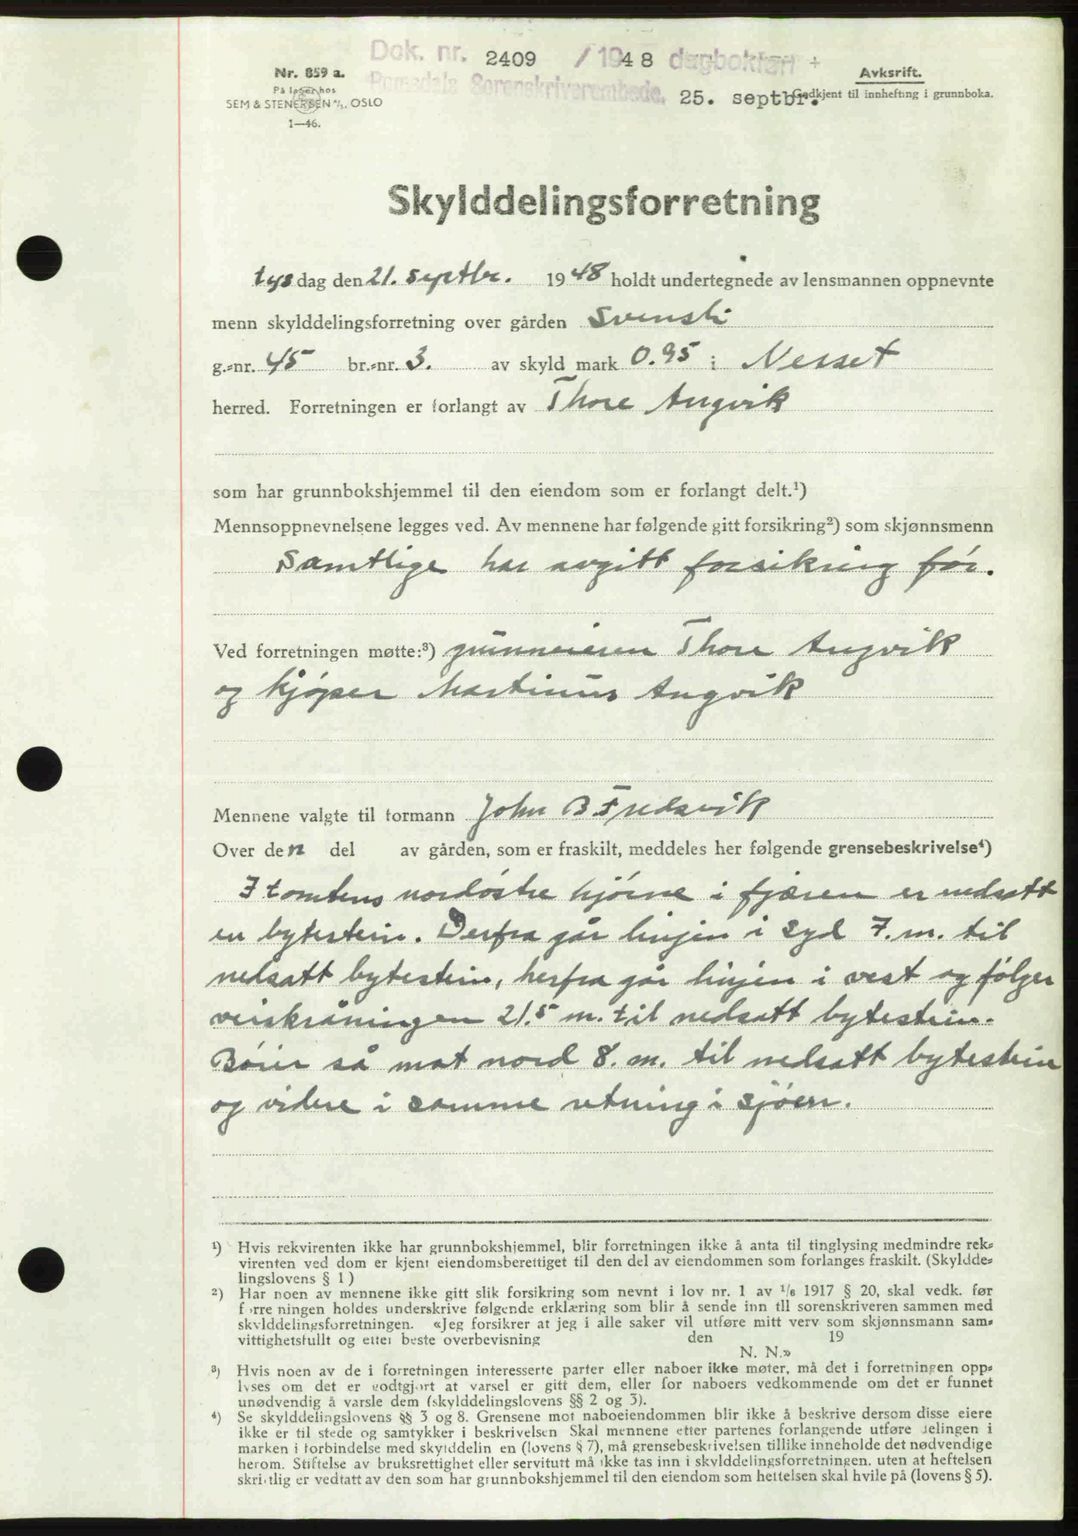 Dok. nr. 2409 / 1948 dagbokført
Romsdals Sorenskriverembede. 25. septbr.
Nr. 859 a.
På lager hos
SEM & STENERSEN A/S, OSLO
1—46.
Avskrift.
Godkjent til innhefting i grunnboka.
Skylddelingsforretning
tysdag den 21. septbr. 1948 holdt undertegnede av lensmannen oppnevnte
menn skylddelingsforretning over gården Svensli
g.-nr. 45 br.-nr. 3. av skyld mark 0.95 i Nesset
herred. Forretningen er forlangt av Thore Angvik
som har grunnbokshjemmel til den eiendom som er forlangt delt.¹)
Mennsoppnevnelsene legges ved. Av mennene har følgende gitt forsikring²) som skjønnsmenn
Samtlige har avgitt forsikring før.
Ved forretningen møtte:³) grunneieren Thore Angvik
og kjøper Martinus Angvik
Mennene valgte til formann John B Fredsvik
Over den del av gården, som er fraskilt, meddeles her følgende grensebeskrivelse⁴)
I tomtens nordøstre hjørne i fjæren er nedsatt
en bytestein. Derfra går linjen i syd 7. m. til
nedsatt bytestein, herfra går linjen i vest og følger
veiskråningen 21.5 m. til nedsatt bytestein.
Bøier så mot nord 8. m. til nedsatt bytestein
og videre i samme retning i sjøen.
¹) Hvis rekvirenten ikke har grunnbokshjemmel, blir forretningen ikke å anta til tinglysing medmindre rek-
virenten ved dom er kjent eiendomsberettiget til den del av eiendommen som forlanges fraskilt. (Skyldde-
lingslovens § 1)
²) Har noen av mennene ikke gitt slik forsikring som nevnt i lov nr. 1 av 1/6 1917 § 20, skal vedk. før
forretningen holdes underskrive følgende erklæring som blir å sende inn til sorenskriveren sammen med
skylddelingsforretningen. «Jeg forsikrer at jeg i alle saker vil utføre mitt verv som skjønnsmann sam-
vittighetsfullt og etter beste overbevisning den 19
N. N.»
³) Hvis noen av de i forretningen interesserte parter eller naboer ikke møter, må det i forretningen opp-
lyses om det er godtgjort at varsel er gitt dem, eller for naboers vedkommende om det er funnet
unødvendig å varsle dem (skylddelingslovens §§ 2 og 3).
⁴) Se skylddelingslovens §§ 3 og 8. Grensene mot naboeiendommen blir ikke å beskrive dersom disse eiere
ikke er til stede og samtykker i beskrivelsen Skal mennene etter partenes forlangende utføre delingen i
marken i forbindelse med skylddelingen (lovens § 7), må grensebeskrivelsen tillike inneholde det nødvendige
herom. Stiftelse av bruksrettighet eller servitutt må ikke tas inn i skylddelingsforretningen, uten at heftelsen
skriftlig er vedtatt av den som har grunnbokshjemmel til den eiendom som heftelsen skal hvile på (lovens § 5).